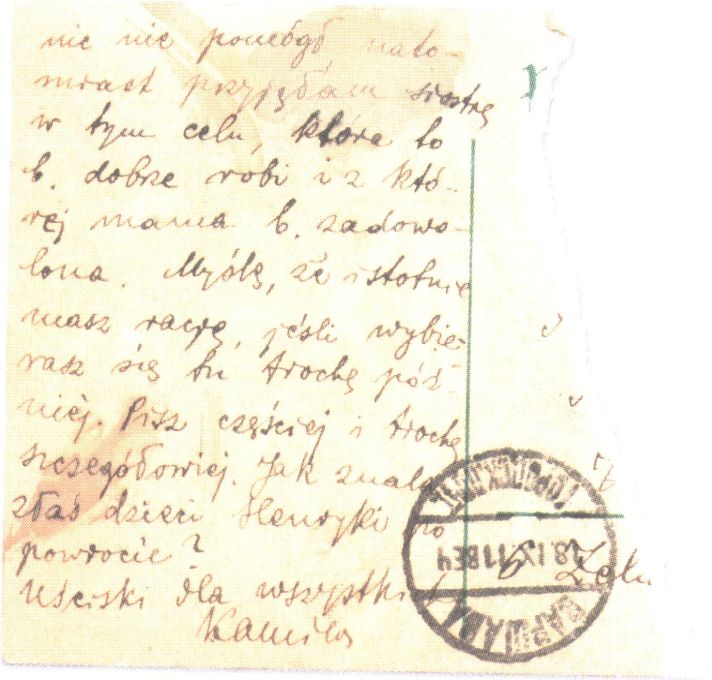 nie nie pomógł nato-
miast przyjęłam siostrę
w tym celu, która to
b. dobrze robi i z któ-
rej mama b. zadowo-
lona. Myślę, że istotnie
masz rację, jeśli wybie-
rasz się tu trochę póź-
niej. Pisz częściej i trochę
szczegółowiej. Jak znala
złaś dzieci Henryki po
powrocie?
Uściski dla wszystkich
Kamila
ВАРШАВА